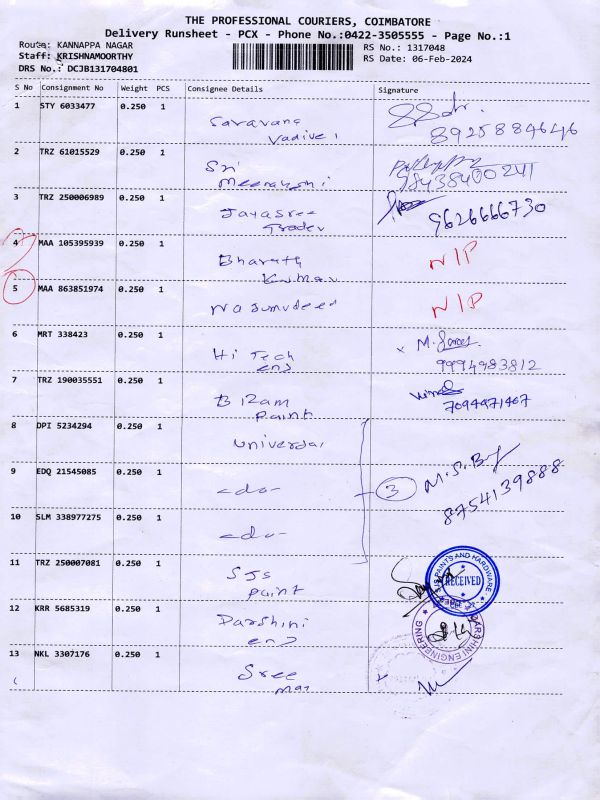 THE PROFESSIONAL COURIERS, COIMBATORE
Delivery Runsheet - PCX - Phone No.:0422-3505555 - Page No.:1
Route: KANNAPPA NAGAR
RS No.: 1317048
Staff: KRISHNAMOORTHY
RS Date: 06-Feb-2024
DRS No.: DCJB131704801
S No Consignment No Weight PCS Consignee Details Signature
1 STY 6033477 0.250 1
Saravana
Vadivel
8925884646
2 TRZ 61015529 0.250 1
Sri
Meenakshi
98438400241
3 TRZ 250006989 0.250 1
Jayasree
Trader
9626666730
4 MAA 105395939 0.250 1
Bharath
Kumar
N/P
5 MAA 863851974 0.250 1
Najumudeed
N/P
6 MRT 338423 0.250 1
Hi Tech
eng
9994983812
7 TRZ 190035551 0.250 1
paint
7094471467
8 DPI 5234294 0.250 1
Universal
9 EDQ 21545085 0.250 1
-do-
3
8754139888
10 SLM 338977275 0.250 1
-do-
11 TRZ 250007081 0.250 1
SJS
paint
SJS PAINTS AND HARDWARE
RECEIVED
12 KRR 5685319 0.250 1
Darshini
eng
DARSHINI ENGINEERING
13 NKL 3307176 0.250 1
Sree